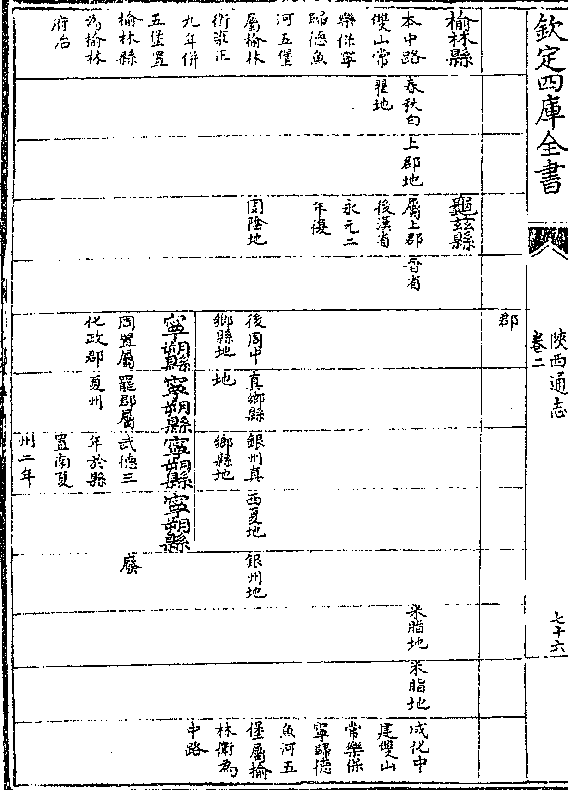 欽定四庫全書
陝西通志
卷二
七十六
郡
榆林縣
本中路
雙山常
樂保寧
歸德魚
河五堡
屬榆林
衛雍正
九年併
五堡置
榆林縣
為榆林
府治
春秋白
翟地
上郡地
龜玆縣
屬上郡
後漢省
永元二
年復
圁陰地
晉省
後周中
鄉縣地
寧朔縣
周置屬
化政郡
真鄉縣
地
寧朔縣
罷郡屬
夏州
銀州真
鄉縣地
寧朔縣
武德三
年於縣
置南夏
州二年
西夏地
寧朔縣
銀州地
廢
米脂地
米脂地
成化中
建雙山
常樂保
寧歸德
魚河五
堡屬榆
林衛為
中路